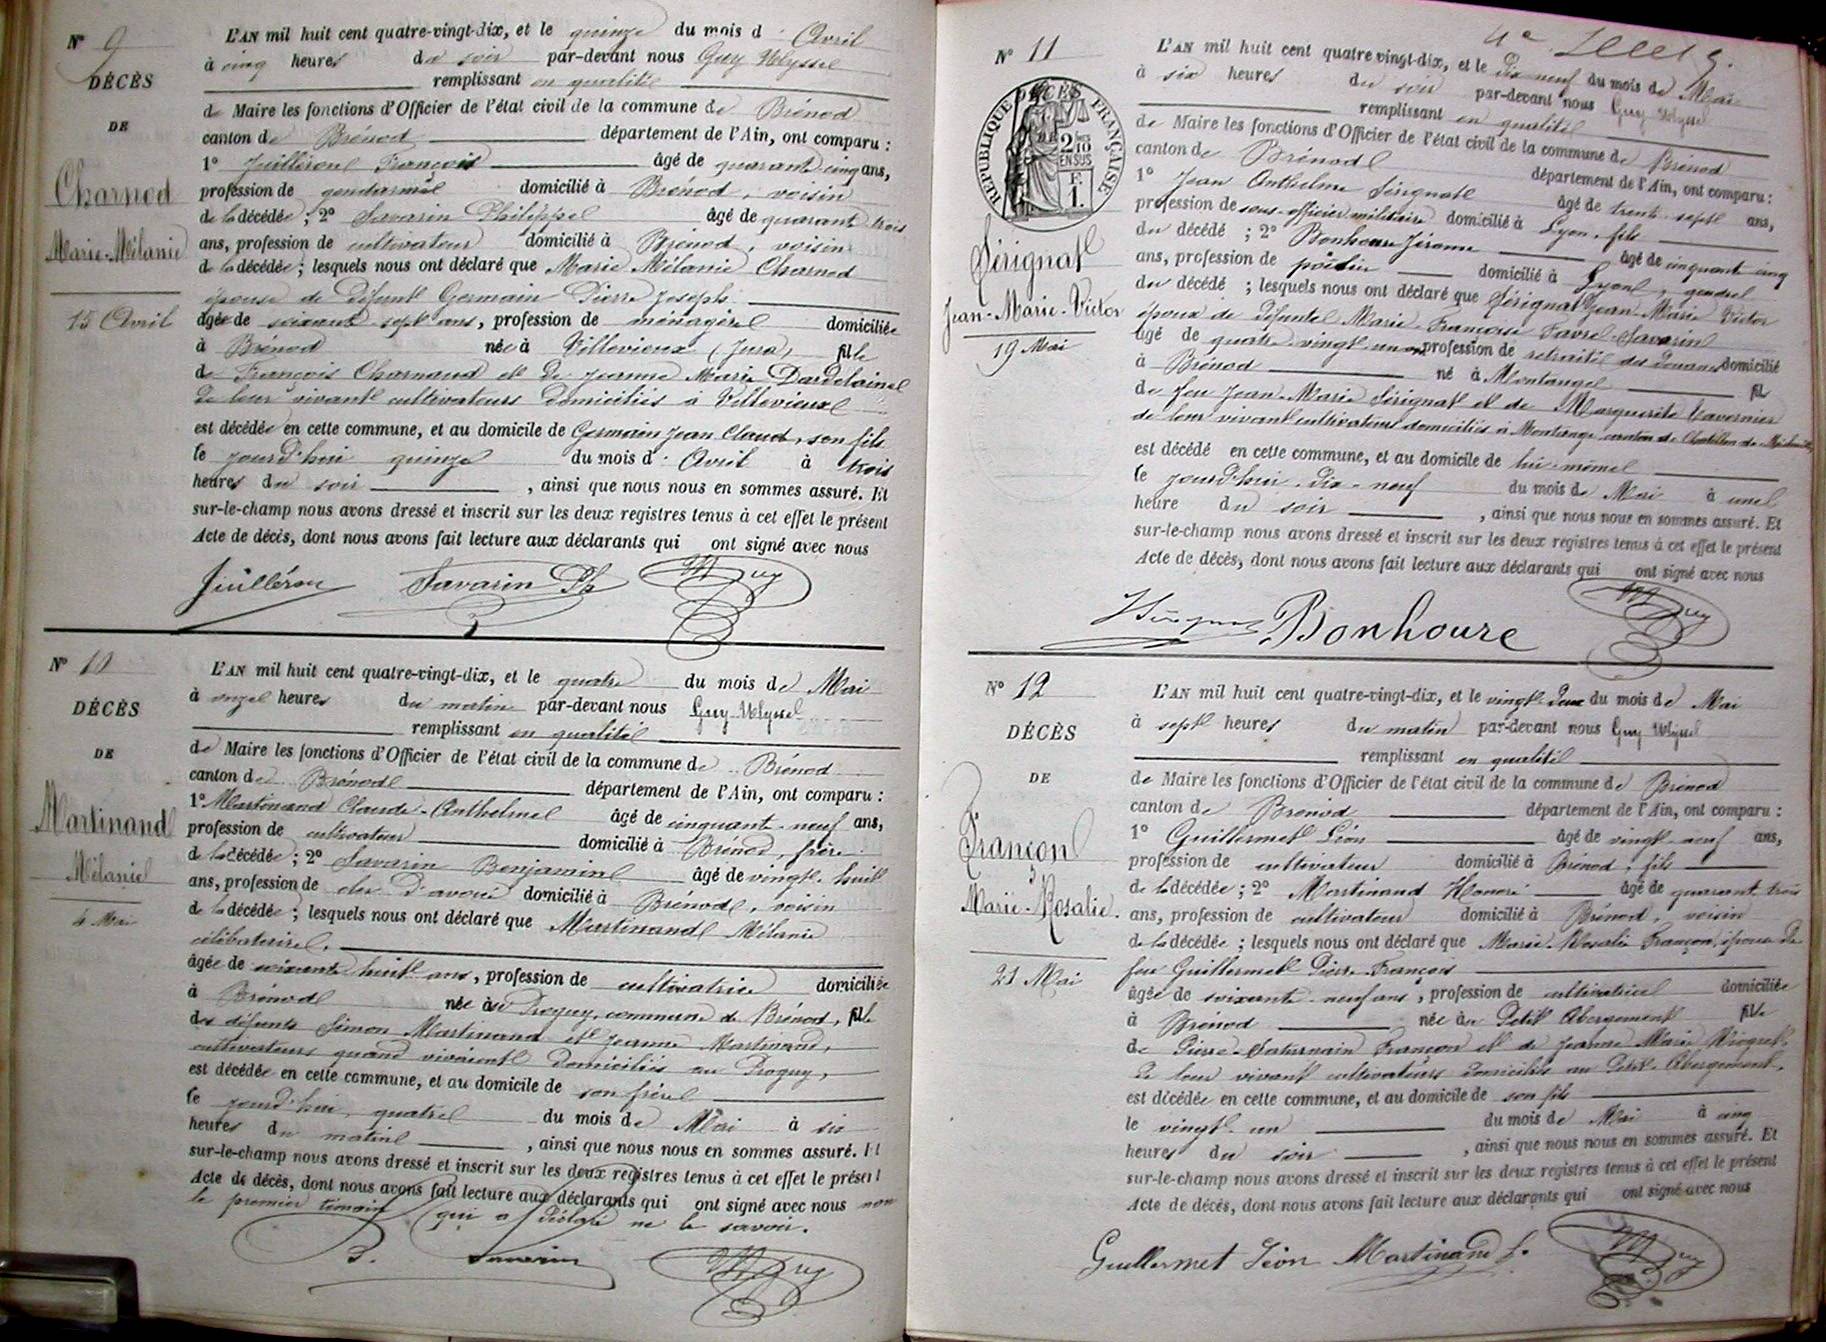 N° 9
DÉCÈS
DE
Charnod
Marie-Mélanie
15 Avril
L'AN mil huit cent quatre-vingt-dix, et le quinze du mois d'Avril
à cinq heures du soir par-devant nous Guy Ulysse
remplissant en qualité
de Maire les fonctions d'Officier de l'état civil de la commune de Brénod
canton de Brénod département de l'Ain, ont comparu :
1° Juilléron François âgé de quarante cinq ans,
profession de gendarme domicilié à Brénod, voisin
de la décédée ; 2° Savarin Philippe âgé de quarante trois
ans, profession de cultivateur domicilié à Brénod, voisin
de la décédée ; lesquels nous ont déclaré que Marie Mélanie Charnod
épouse de défunt Germain Pierre Joseph
âgée de soixante sept ans, profession de ménagère domiciliée
à Brénod née à Villevieux (Jura) fille
de François Charnaud et de Jeanne Marie Dardelaine
de leur vivant cultivateurs domiciliés à Villevieux
est décédée en cette commune, et au domicile de Germain Jean Claude, son fils
le jourd'hui quinze du mois d'Avril à trois
heures du soir , ainsi que nous nous en sommes assuré. Et
sur-le-champ nous avons dressé et inscrit sur les deux registres tenus à cet effet le présent
Acte de décès, dont nous avons fait lecture aux déclarants qui ont signé avec nous
Juilléron Savarin Ph Guy
N° 10
DÉCÈS
DE
Martinand
Mélanie
4 Mai
L'AN mil huit cent quatre-vingt-dix, et le quatre du mois de Mai
à onze heures du matin par-devant nous Guy Ulysse
remplissant en qualité
de Maire les fonctions d'Officier de l'état civil de la commune de Brénod
canton de Brénod département de l'Ain, ont comparu :
1° Martinand Claude-Anthelme âgé de cinquante-neuf ans,
profession de cultivateur domicilié à Brénod, frère
de la décédée ; 2° Savarin Benjamin âgé de vingt-huit
ans, profession de clerc d'avoué domicilié à Brénod, voisin
de la décédée ; lesquels nous ont déclaré que Martinand Mélanie
célibataire,
âgée de soixante huit ans, profession de cultivatrice domiciliée
à Brénod née au Proguy, commune de Brénod, fille
des défunts Simon Martinand et Jeanne Martinand,
cultivateurs quand vivaient domiciliés au Proguy,
est décédée en cette commune, et au domicile de son frère
le jourd'hui, quatre du mois de Mai à six
heures du matin , ainsi que nous nous en sommes assuré. Et
sur-le-champ nous avons dressé et inscrit sur les deux registres tenus à cet effet le présent
Acte de décès, dont nous avons fait lecture aux déclarants qui ont signé avec nous non
le premier témoin qui a déclaré ne le savoir.
B. Savarin Guy
N° 11
DÉCÈS
DE
RÉPUBLIQUE FRANÇAISE
2 10 EN SUS
F. 1.
Sérignat
Jean-Marie-Victor
19 Mai
L'AN mil huit cent quatre vingt-dix, et le dix neuf du mois de Mai
à six heures du soir par-devant nous Guy Ulysse
remplissant en qualité
de Maire les fonctions d'Officier de l'état civil de la commune de Brénod
canton de Brénod département de l'Ain, ont comparu :
1° Jean Anthelme Sérignat âgé de trente-sept ans,
profession de sous-officier militaire domicilié à Lyon, fils
du décédé ; 2° Bonhoure Jérome âgé de cinquante cinq
ans, profession de domicilié à Lyon, gendre
du décédé ; lesquels nous ont déclaré que Sérignat Jean-Marie Victor
époux de défunte Marie-Françoise Favre-Savarin
âgé de quatre vingt un ans, profession de retraité des Douanes domicilié
à Brénod né à Montange fils
de feu Jean-Marie Sérignat et de Marguerite Tavernier
de leur vivant cultivateurs domiciliés à Montange, canton de Chatillon de Michaille,
est décédé en cette commune, et au domicile de lui-même
le jourd'hui dix-neuf du mois de Mai à une
heure du soir , ainsi que nous nous en sommes assuré. Et
sur-le-champ nous avons dressé et inscrit sur les deux registres tenus à cet effet le présent
Acte de décès, dont nous avons fait lecture aux déclarants qui ont signé avec nous
Sérignat Bonhoure Guy
N° 12
DÉCÈS
DE
Françon
Marie-Rosalie.
21 Mai
L'AN mil huit cent quatre-vingt-dix, et le vingt-deux du mois de Mai
à sept heures du matin par-devant nous Guy Ulysse
remplissant en qualité
de Maire les fonctions d'Officier de l'état civil de la commune de Brénod
canton de Brénod département de l'Ain, ont comparu :
1° Guillermet Léon âgé de vingt-neuf ans,
profession de cultivateur domicilié à Brénod, fils
de la décédée ; 2° Martinand Honoré âgé de quarante trois
ans, profession de cultivateur domicilié à Brénod, voisin
de la décédée ; lesquels nous ont déclaré que Marie-Rosalie Françon, épouse de
feu Guillermet Pierre-François
âgée de soixante-neuf ans, profession de cultivatrice domiciliée
à Brénod née au Petit Abergement fille
de Pierre-Saturnin Françon et de Jeanne Marie
de leur vivant cultivateurs domiciliés au Petit-Abergement,
est décédée en cette commune, et au domicile de son fils
le vingt-un du mois de Mai à cinq
heures du soir , ainsi que nous nous en sommes assuré. Et
sur-le-champ nous avons dressé et inscrit sur les deux registres tenus à cet effet le présent
Acte de décès, dont nous avons fait lecture aux déclarants qui ont signé avec nous
Guillermet Léon Martinand h. Guy